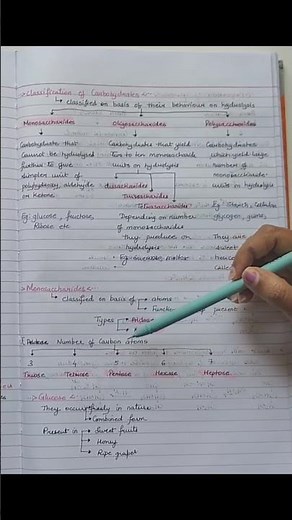 Classification of Carbohydrates
classified on basis of their behaviour on hydrolysis
Monosaccharides Oligosaccharides Polysaccharides
Carbohydrate that Carbohydrates that yield Carbohydrates
cannot be hydrolysed two to ten monosacch. which yield large
further to give units on hydrolysis number of
simpler unit of disaccharides monosaccharide
polyhydroxy aldehyde Trisaccharides units on hydrolysis
or ketone Tetrasaccharides Eg: Starch, Cellulose
Eg: glucose, fructose, Depending on number glycogen, gums,
ribose etc of monosaccharides They are
they produce on
hydrolysis
Eg: sucrose, maltose
Monosaccharides
Classified on basis of atoms
present
Types Aldose
Number of Carbon atoms
3 4 5 6 7
Triose Tetrose Pentose Hexose Heptose
Glucose
They occurs freely in nature
Combined form
Present in Sweet fruits
Honey
Ripe grapes